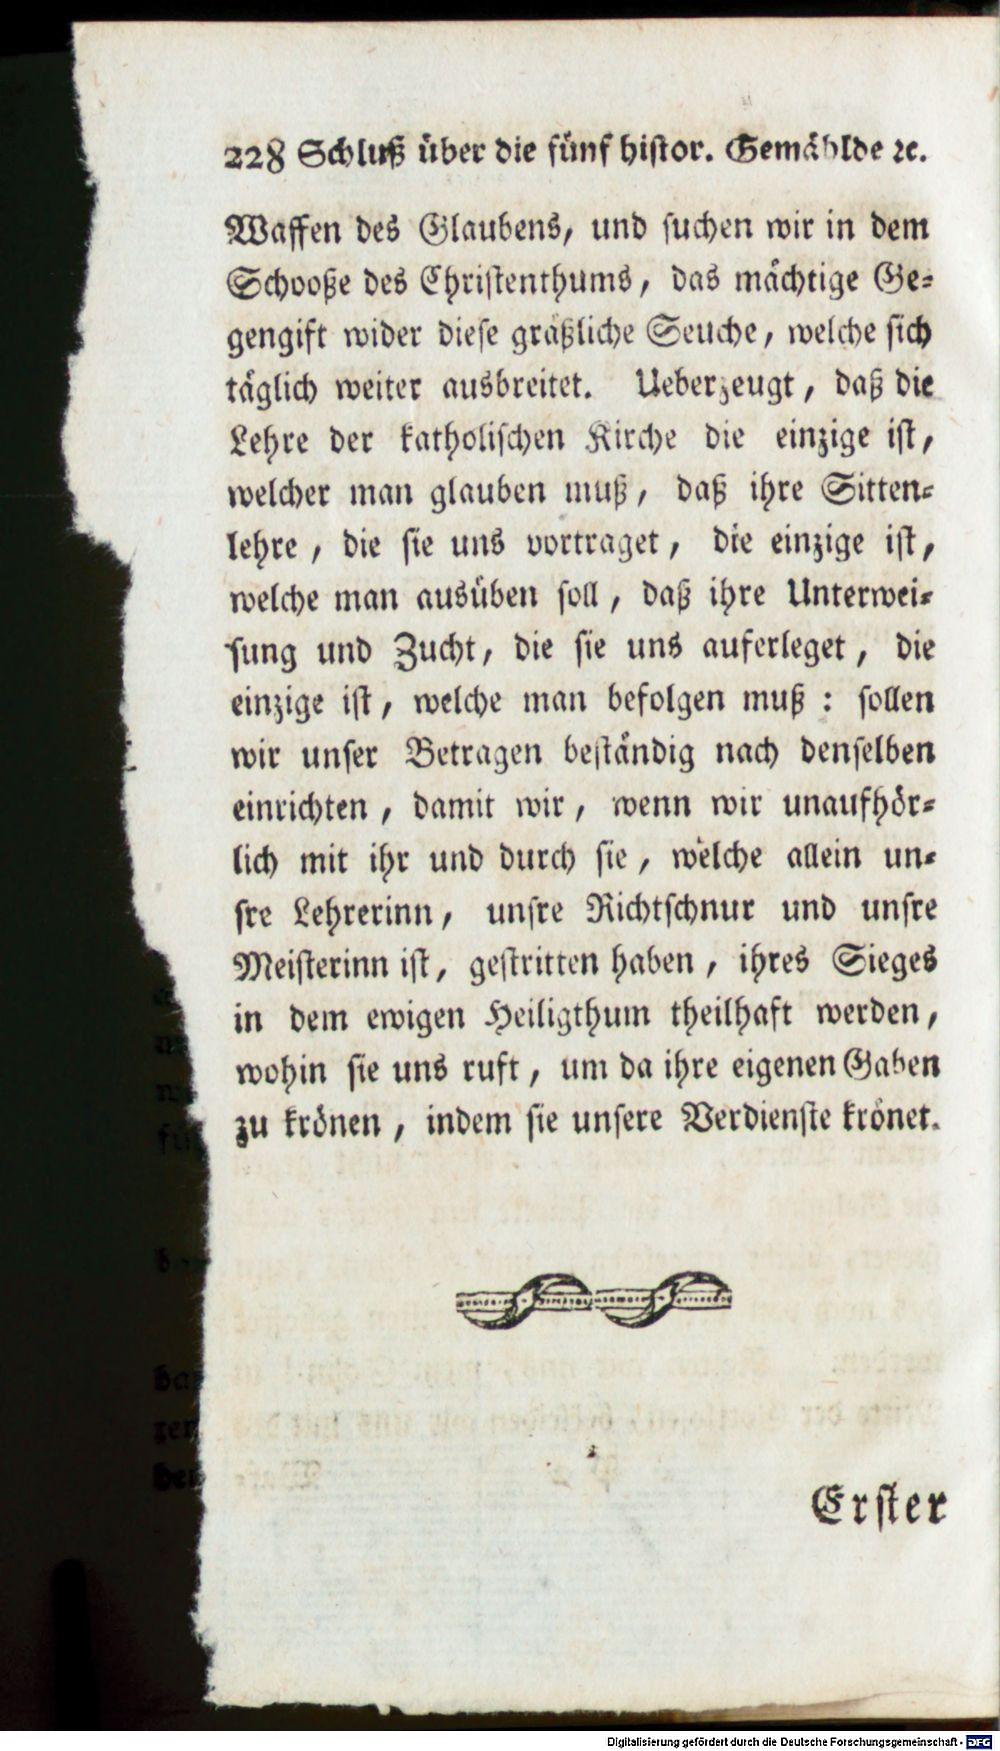 228 Schluß über die fünf histor. Gemählde ꝛc.
Waffen des Glaubens, und suchen wir in dem
Schooße des Christenthums, das mächtige Ge-
gengift wider diese gräßliche Seuche, welche sich
täglich weiter ausbreitet. Ueberzeugt, daß die
Lehre der katholischen Kirche die einzige ist,
welcher man glauben muß, daß ihre Sitten-
lehre, die sie uns vortraget, die einzige ist,
welche man ausüben soll, daß ihre Unterwei-
sung und Zucht, die sie uns auferleget, die
einzige ist, welche man befolgen muß: sollen
wir unser Betragen beständig nach denselben
einrichten, damit wir, wenn wir unaufhör-
lich mit ihr und durch sie, welche allein un-
sre Lehrerinn, unsre Richtschnur und unsre
Meisterinn ist, gestritten haben, ihres Sieges
in dem ewigen Heiligthum theilhaft werden,
wohin sie uns ruft, um da ihre eigenen Gaben
zu krönen, indem sie unsere Verdienste krönet.
Erster
Digitalisierung gefördert durch die Deutsche Forschungsgemeinschaft - DFG